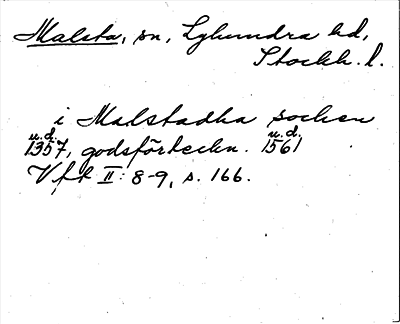 Malsta, sn, Lyhundra hd,
Stockh. l.
i Malstadha socken
u.d. u.d.
1357, godsförteckn. 1561
Vfk II: 8-9, s. 166.